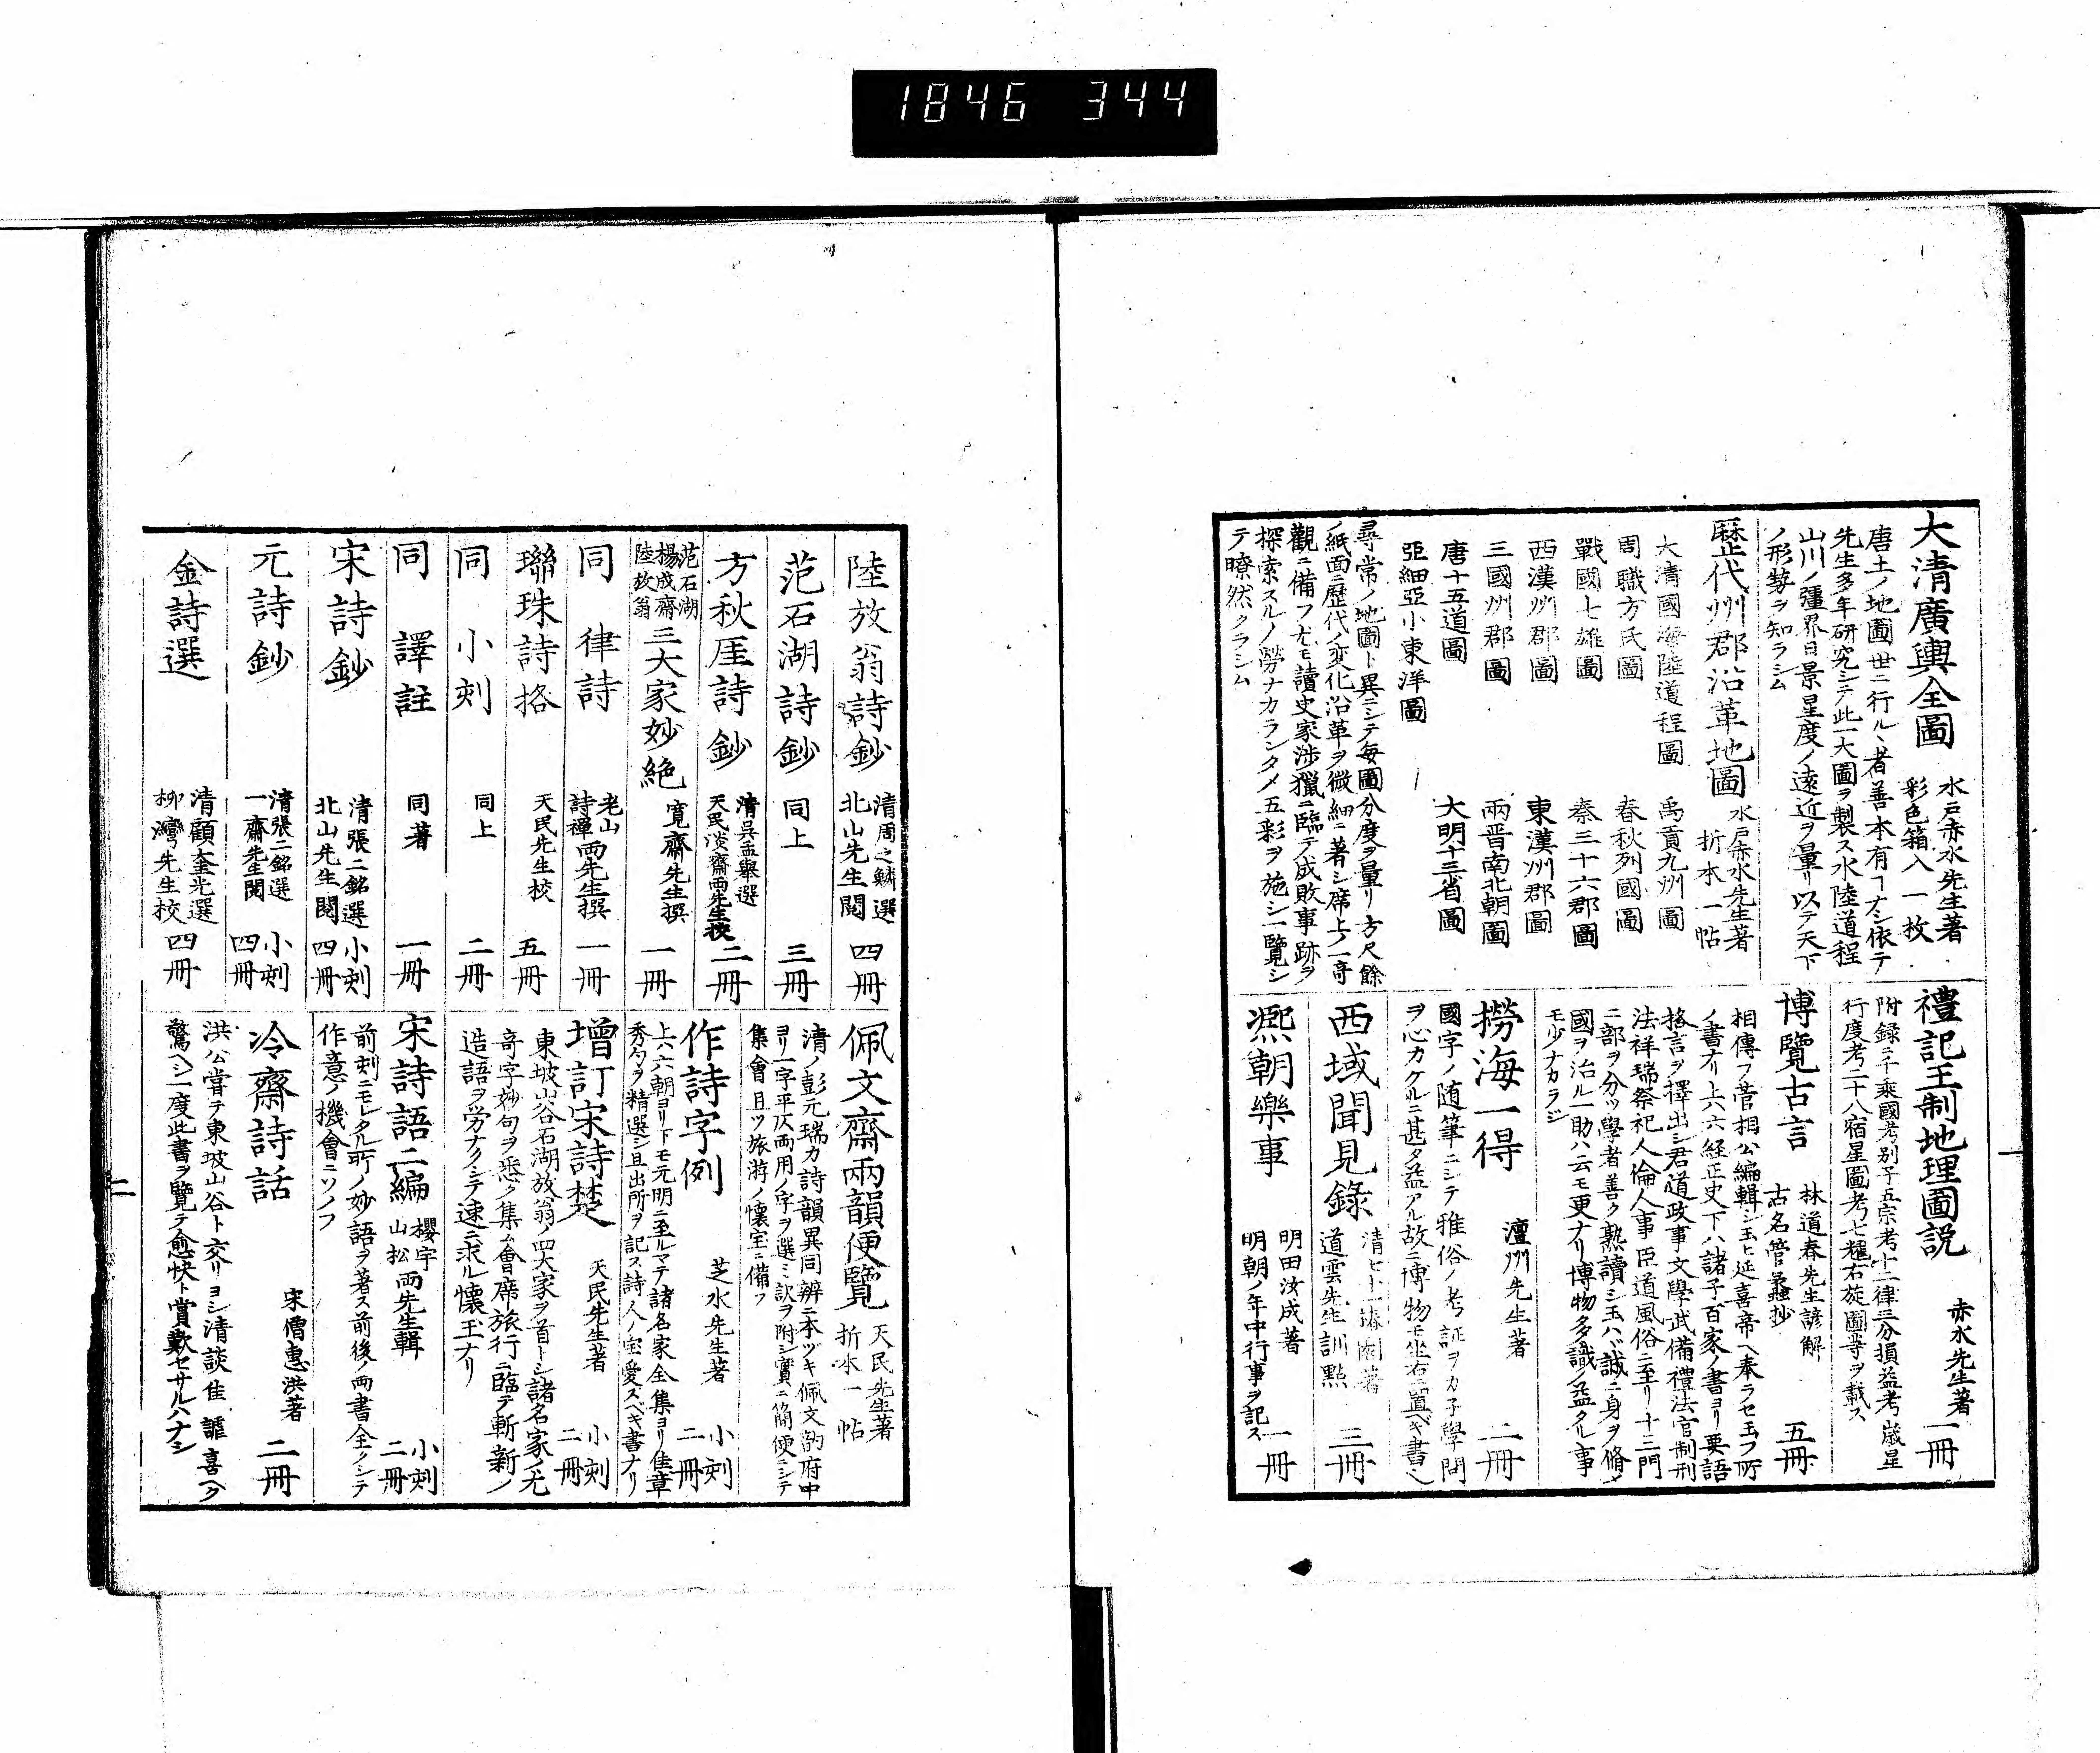 1846 344
大清廣輿全圖
水戸赤水先生著
彩色箱入一枚
唐土ノ地圖世ニ行ルヽ者善本有ヿナシ依テ
先生多年研究シテ此一大圖ヲ製ス水陸道程
山川ノ疆界日景星度ノ遠近ヲ量リ以テ天下
ノ形勢ヲ知ラシム
歴代州郡沿革地圖
水戸赤水先生著
折本一帖
大清國 陸道程圖
禹貢九州圖
周職方氏圖
春秋列國圖
戰國七雄圖
秦三十六郡圖
西漢州郡圖
東漢州郡圖
三國州郡圖
兩晋南北朝圖
唐十五道圖
大明十三省圖
亞細亞小東洋圖
尋常ノ地圖ト異ニシテ毎圖分度ヲ量リ方尺餘
ノ紙面ニ歴代ノ変化沿革ヲ微細ニ著シ席上ノ一奇
觀ニ備フ尤モ讀史家渉獵ニ臨テ成敗事跡ヲ
探索スルノ勞ナカランタメ五彩ヲ施シ一覽シ
テ瞭然タラシム
禮記王制地理圖説
赤水先生著
一冊
附録ニ千乘國考別子五宗考十二律三分損益考歳星
行度考二十八宿星圖考七糎右旋圖等ヲ載ス
博覽古言
林道春先生諺解
古名管蠡抄
五冊
相傳フ菅相公編輯シ玉ヒ延喜帝ヘ奉ラセ玉フ所
ノ書ナリ上六経正史下ハ諸子百家ノ書ヨリ要語
格言ヲ擇出シ君道政事文學武備禮法官制刑
法祥瑞祭祀人倫人事臣道風俗ニ至リ十三門
ニ部ヲ分ツ學者善ク熟讀シ玉ハヾ誠ニ身ヲ脩メ
國ヲ治ル一助ハ云モ更ナリ博物多識ノ益タル事
モ少ナカラジ
撈海一得
澶州先生著
二冊
國字ノ随筆ニシテ雅俗ノ考証ヲカ子學問
ヲ心カケルニ甚タ益アル故ニ博物モ坐右ニ置ベキ書ヘ
西域聞見錄
清七十一 著
道雲先生訓點
三冊
熈朝樂事
明田汝成著
明朝ノ年中行事ヲ記ス
一冊
陸放翁詩鈔
清周之鱗選
北山先生閲
四冊
范石湖詩鈔
同上
三冊
方秋厓詩鈔
清呉孟舉選
天民淡齋兩先生挍
二冊
范石湖
楊成齋
陸放翁
三大家妙絶
寛齋先生撰
一冊
同律詩
老山
詩禪
両先生撰
一冊
聯珠詩格
天民先生校
五冊
同小刻
同上
二冊
同譯註
同著
一冊
宋詩鈔
清張二銘選
北山先生閲
小刻
四冊
元詩鈔
清張二銘選
一齋先生閲
小刻
四冊
金詩選
清顧奎光選
柳灣先生校
四冊
佩文齋兩韻便覽
天民先生著
折本一帖
清ノ彭元瑞カ詩韻異同辨ニ本ヅキ佩文韵府中
ヨリ一字平仄両用ノ字ヲ選ミ訳ヲ附シ實ニ簡便ニシテ
集會且ツ旅游ノ懐宝ニ備フ
作詩字例
芝水先生著
小刻
二冊
上六朝ヨリ下モ元明ニ至ルマテ諸名家全集ヨリノ佳章
秀句ヲ精選シ且出所ヲ記ス詩人ノ宝愛スベキ書ナリ
増訂宋詩楚
天民先生著
小刻
二冊
東坡山谷石湖放翁ノ四大家ヲ首トシ諸名家ノ尤
竒字妙句ヲ悉ク集ム會席旅行ニ臨テ斬新ノ
造語ヲ労ナクシテ速ニ求ル懐玉ナリ
宋詩語二編
櫻宇
山松
両先生輯
小刻
二冊
前刻ニモレタル所ノ妙語ヲ著ス前後ノ両書全クシテ
作意ノ機會ニツノフ
冷齋詩話
宋僧惠洪著
二冊
洪公甞テ東坡山谷ト交リヨシ清談佳謔喜ヘク
驚ヘシ一度此書ヲ覽テ愈快ト賞歎セサルハナシ
二